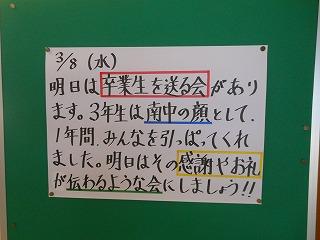 3/8(水)
明日は卒業生を送る会があり
ます。3年生は南中の顔として、
1年間、みんなを引っぱってくれ
ました。明日はその感謝やお礼
が伝わるような会にしましょう!!